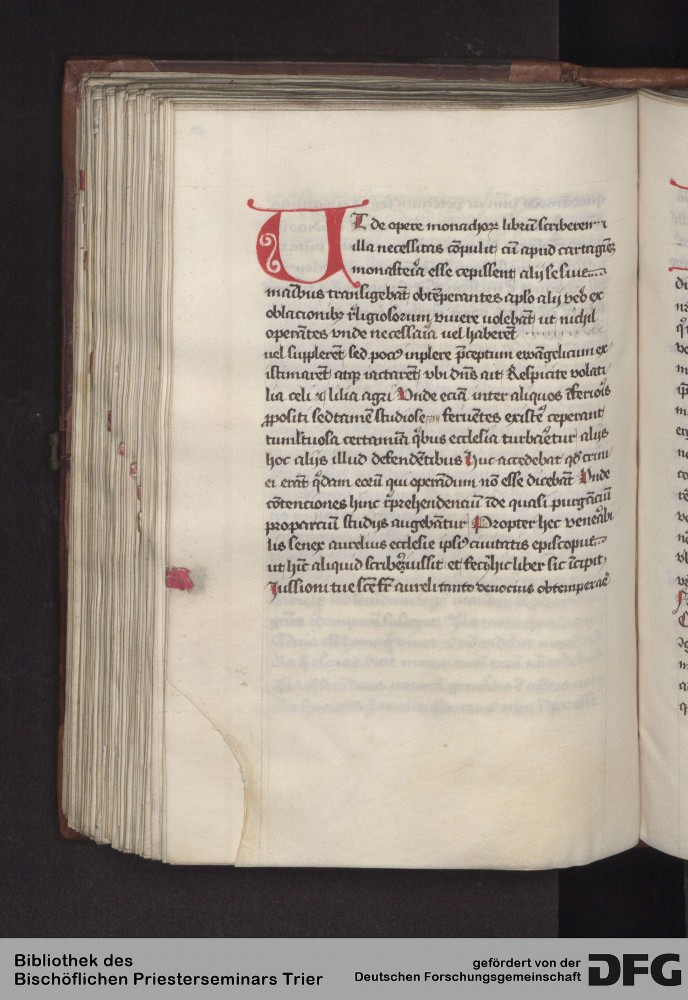 Ut de opere monachoꝝ librū scriberem
illa necessitas cōpulit cū apud cartagiēꝫ
monasteria esse cepissent alij se suis
manibus transigebāt obtēperantes aplo alij vero ex
oblacionibꝫ religiosorum viuere uolebāt ut nichil
operātes vnde necessaria uel haberēt
uel supplerēt sed pociꝰ inplere p̄ceptum ewāgelicum ex
istimarēt atqꝫ iactarēt vbi dn̄s ait Respicite volati
lia celi ⁊ lilia agri Vnde eciā inter aliquos īferioris
ꝓpositi sed tamē studiose feruētes existē ceperant
tumltuosa certamina qibus ecclesia turbaretur alijs
hoc alijs illud defendētibus Huc accedebat qd crini
ei erāt qidam eorū qui operādum nō esse dicebāt Vnde
cōtenciones hinc rep̄hendenciū īde quasi purgāciū
pro parciū studijs augebātur Propter hec venerabi
lis senex aurelius ecclesie ipsiꝰ ciuitatis episcopus
ut hīc aliquid scriberē iussit et feci hic liber sic īcipit
Iussioni tue sc̄e fr̄ aureli tanto deuocius obtemperare
Bibliothek des
Bischöflichen Priesterseminars Trier
gefördert von der
Deutschen Forschungsgemeinschaft
DFG